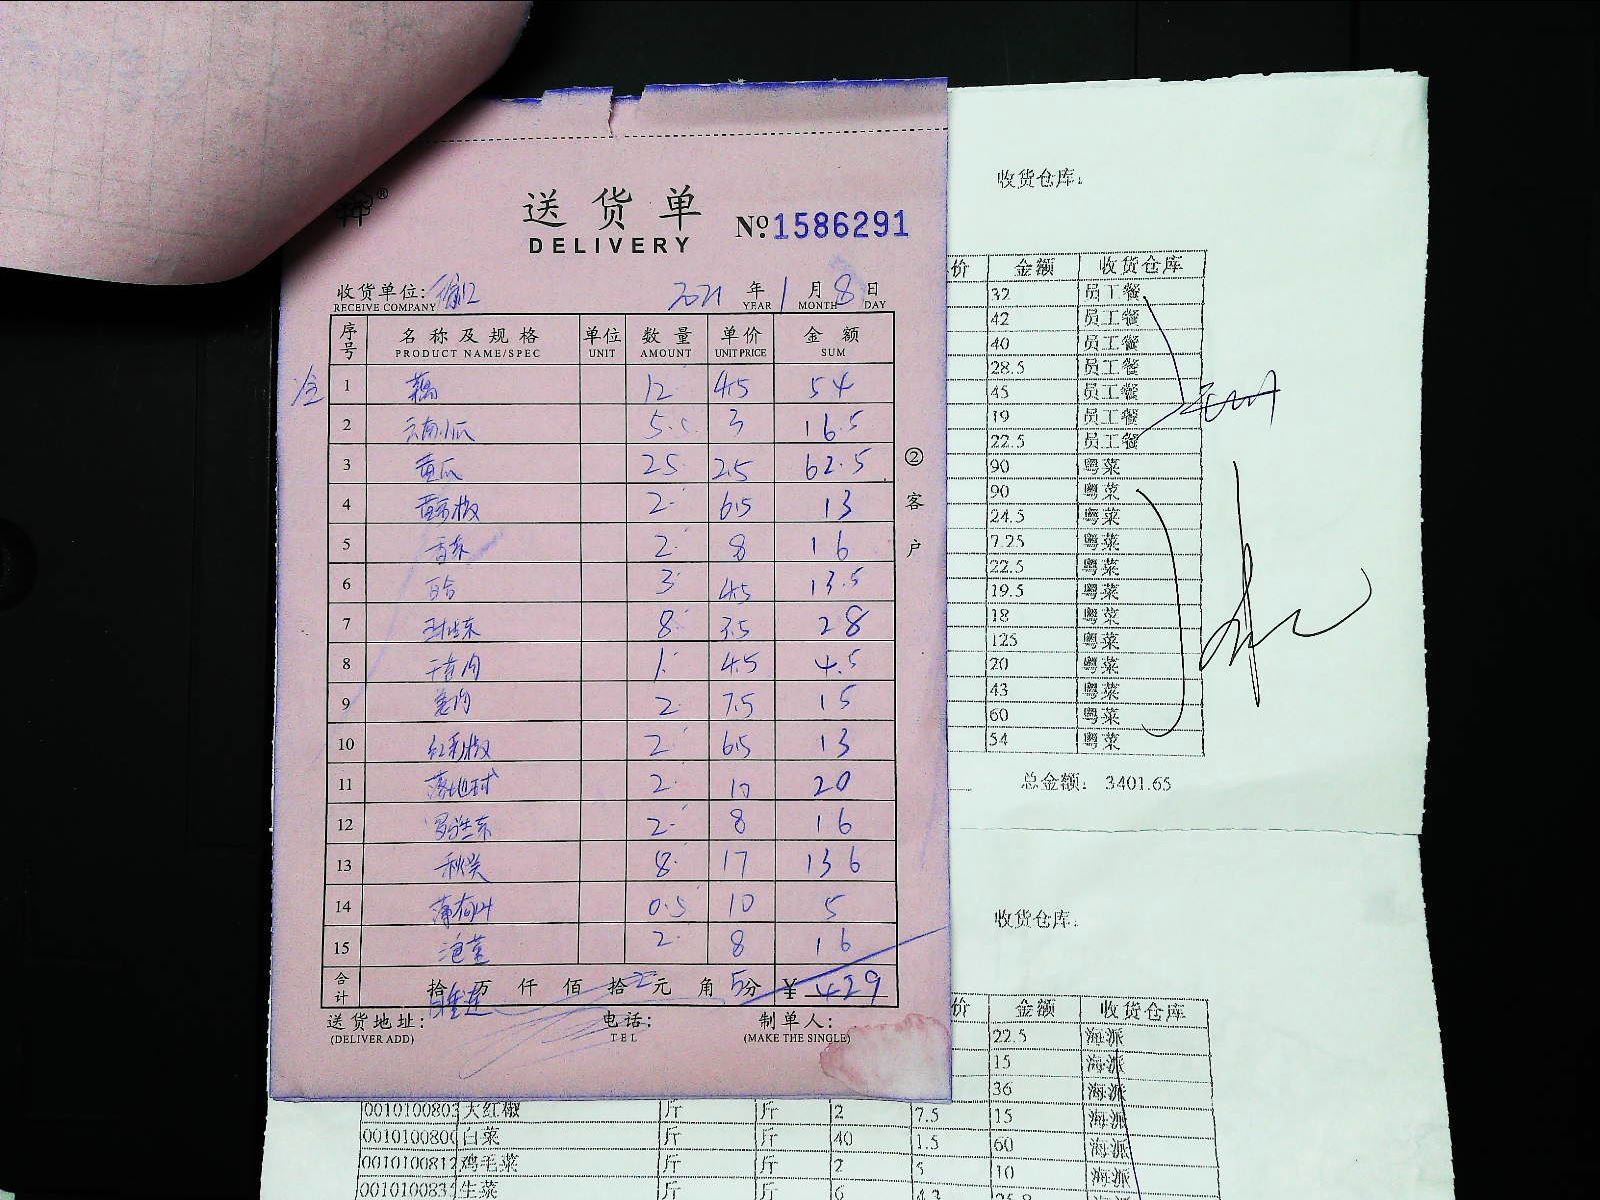 送货单
DELIVERY
№1586291
收货单位: 2021 年 1 月 8 日
RECEIVE COMPANY YEAR MONTH DAY
序号 名称及规格 单位 数量 单价 金额
PRODUCT NAME/SPEC UNIT AMOUNT UNIT PRICE SUM
1 藕 12 4.5 54
2 云南小瓜 3 16.5
3 黄瓜 25 2.5 62.5
4 黄彩椒 2 6.5 13
5 香菜 2 8 16
6 百合 3 4.5 13.5
7 8 3.5 28
8 1 4.5 4.5
9 葱肉 2 7.5 15
10 红彩椒 2 6.5 13
11 落地球 2 10 20
12 罗生菜 2 8 16
13 秋葵 8 17 136
14 薄荷叶 0.5 10 5
15 2 8 16
合计 拾 万 仟 佰 拾 元 角 5 分 ¥ 429
送货地址: 电话: 制单人:
(DELIVER ADD) TEL (MAKE THE SINGLE)
②客户
收货仓库:
价 金额 收货仓库
32 员工餐
42 员工餐
40 员工餐
28.5 员工餐
45 员工餐
19 员工餐
22.5 员工餐
90 粤菜
90 粤菜
24.5 粤菜
7.25 粤菜
22.5 粤菜
19.5 粤菜
18 粤菜
125 粤菜
20 粤菜
43 粤菜
60 粤菜
54 粤菜
总金额: 3401.65
收货仓库:
价 金额 收货仓库
22.5 海派
15 海派
36 海派
0010100803 大红椒 斤 斤 2 7.5 15 海派
001010080 白菜 斤 斤 40 1.5 60 海派
0010100812 鸡毛菜 斤 斤 2 5 10 海派
001010083 生菜 斤 斤 6 4.3 25.8